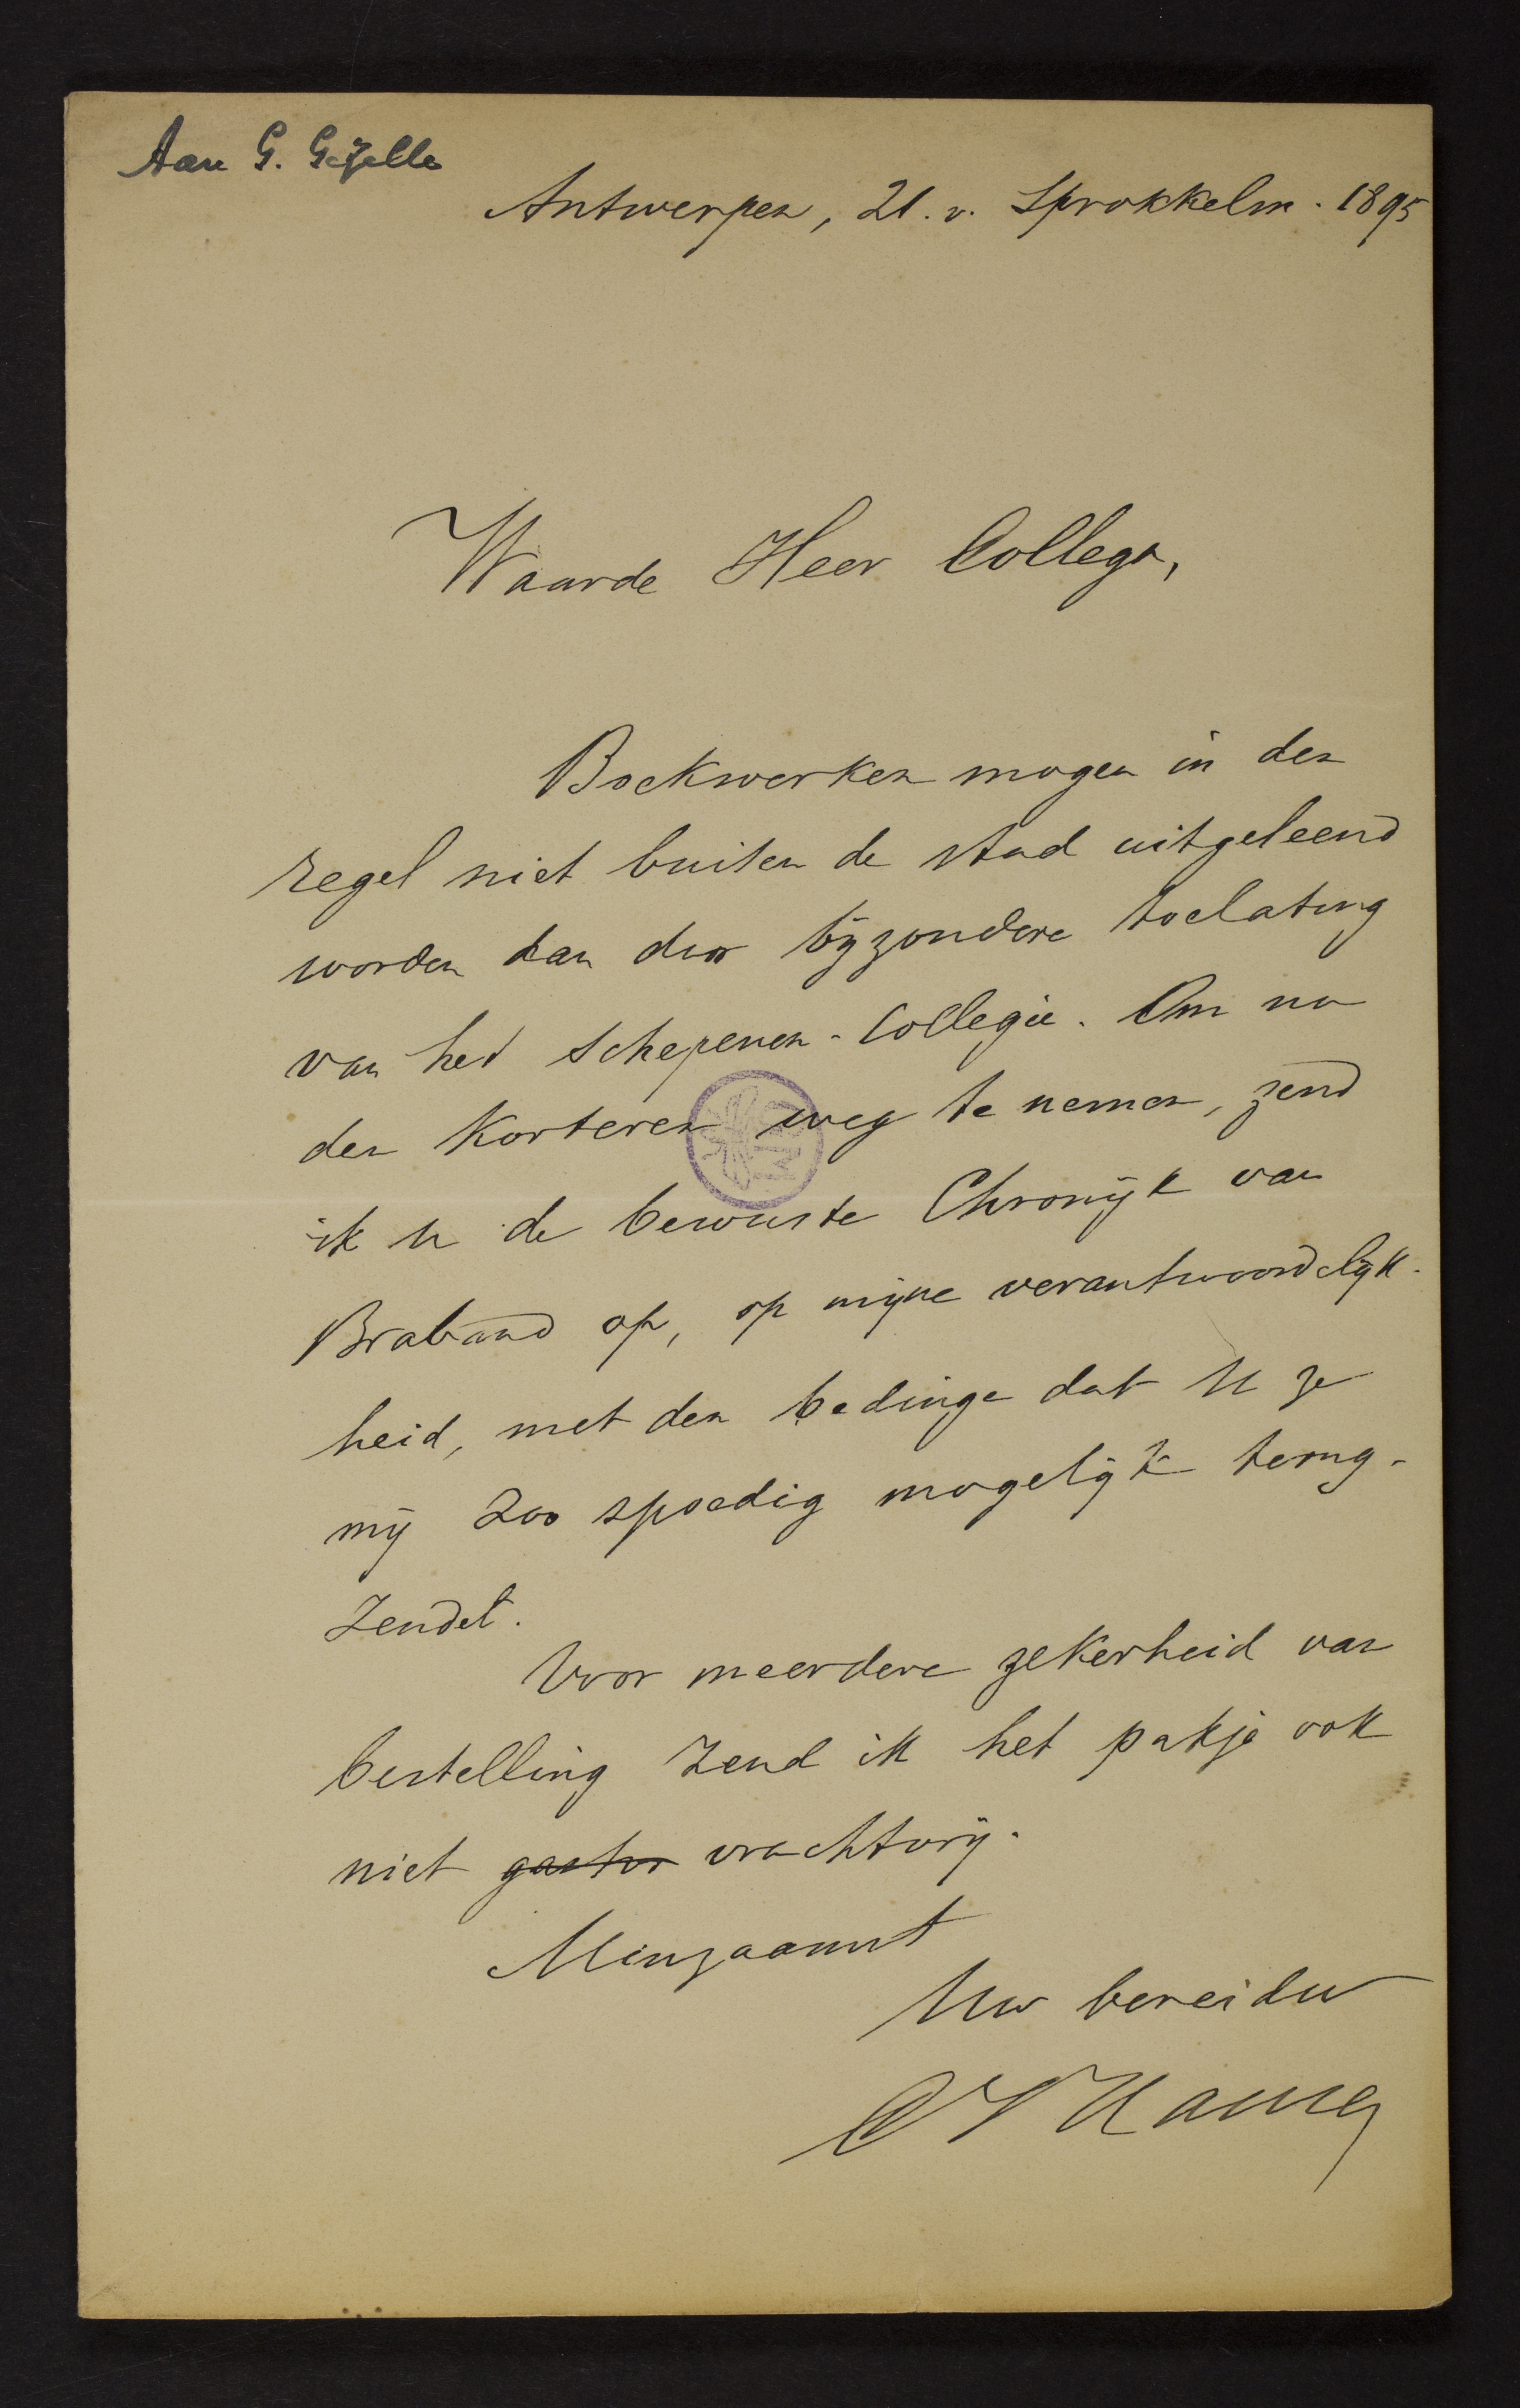 Aan G. Gezelle
Antwerpen, 21. v. Sprokkelm. 1895
Waarde Heer Collega,
Boekwerken mogen in den
regel niet buiten de stad uitgeleend
worden dan door bijzondere toelating
van het Schepenen-Collegie. Om nu
den korteren weg te nemen, zend
ik U de bewuste Chronijk van
Braband op, op mijne verantwoordelijk-
heid, met den bedinge dat U ze
mij zoo spoedig mogelijk terug-
zendet.
Voor meerdere zekerheid van
bestelling zend ik het pakje ook
niet vrachtvrij.
Minzaamst
Uw bereidw